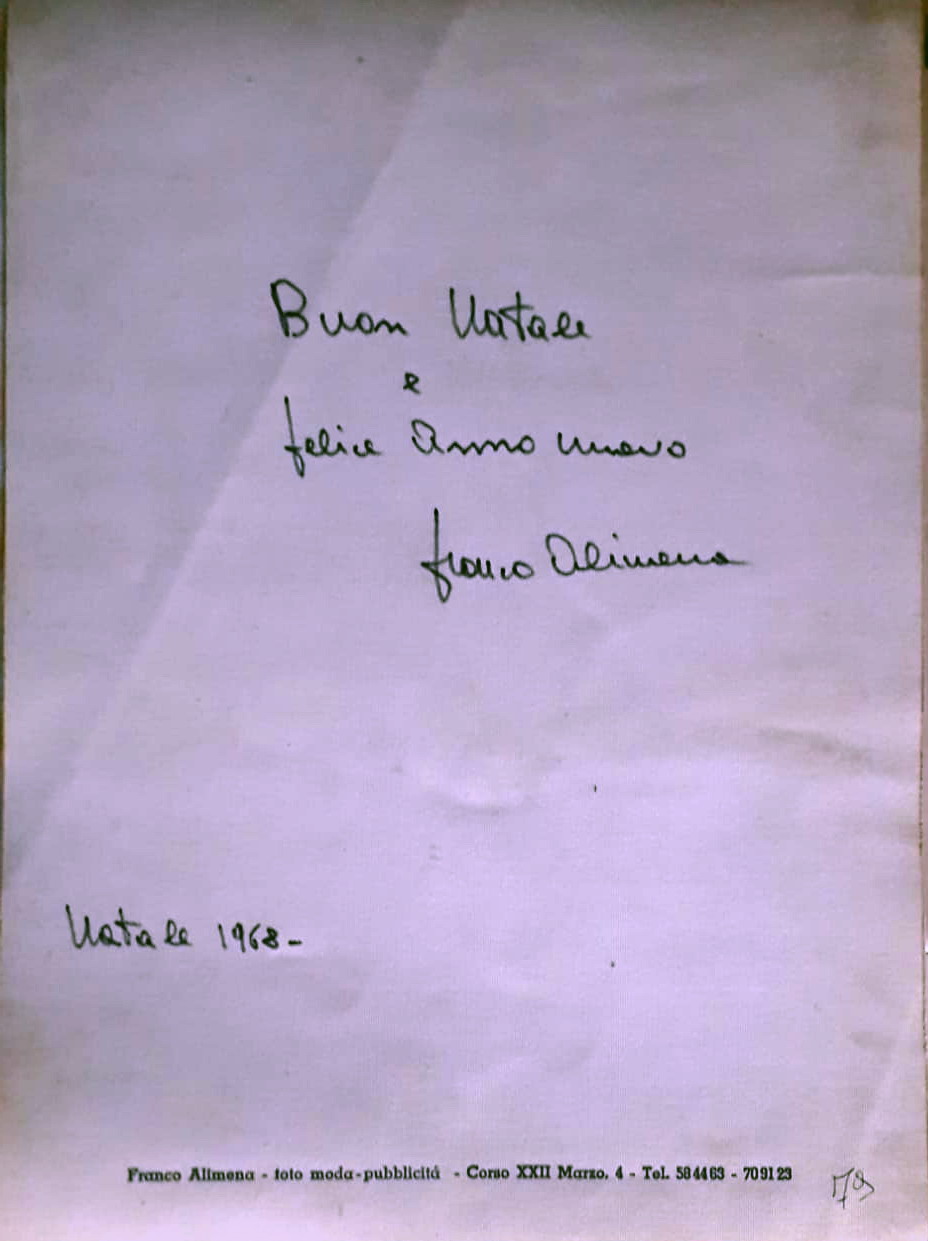 Buon Natale
e
felice Anno nuovo
Franco Alimena
Natale 1968-
Franco Alimena - foto moda-pubblicitá - Corso XXII Marzo, 4 - Tel. 584463 - 709123